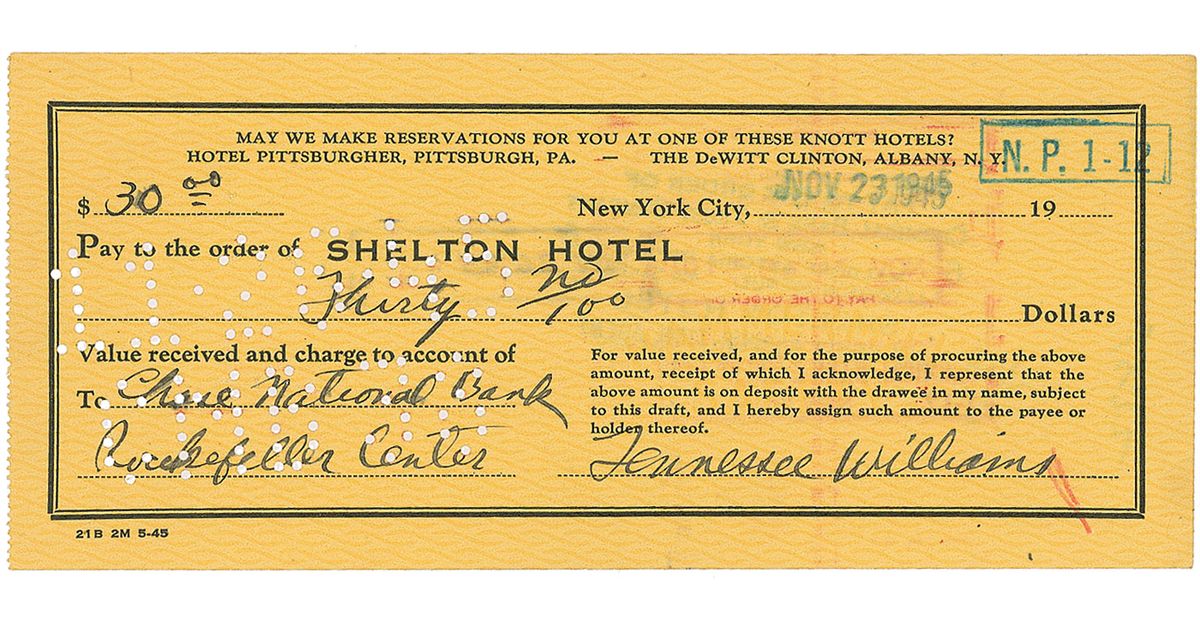 MAY WE MAKE RESERVATIONS FOR YOU AT ONE OF THESE KNOTT HOTELS?
HOTEL PITTSBURGHER, PITTSBURGH, PA. — THE DeWITT CLINTON, ALBANY, N. Y.
N. P. 1-12
NOV 23 1945
$ 30 00
New York City, 19
Pay to the order of SHELTON HOTEL
Thirty no/100 Dollars
Value received and charge to account of
To Chase National Bank
Rockefeller Center
For value received, and for the purpose of procuring the above
amount, receipt of which I acknowledge, I represent that the
above amount is on deposit with the drawee in my name, subject
to this draft, and I hereby assign such amount to the payee or
holder thereof.
Tennessee Williams
21B 2M 5-45